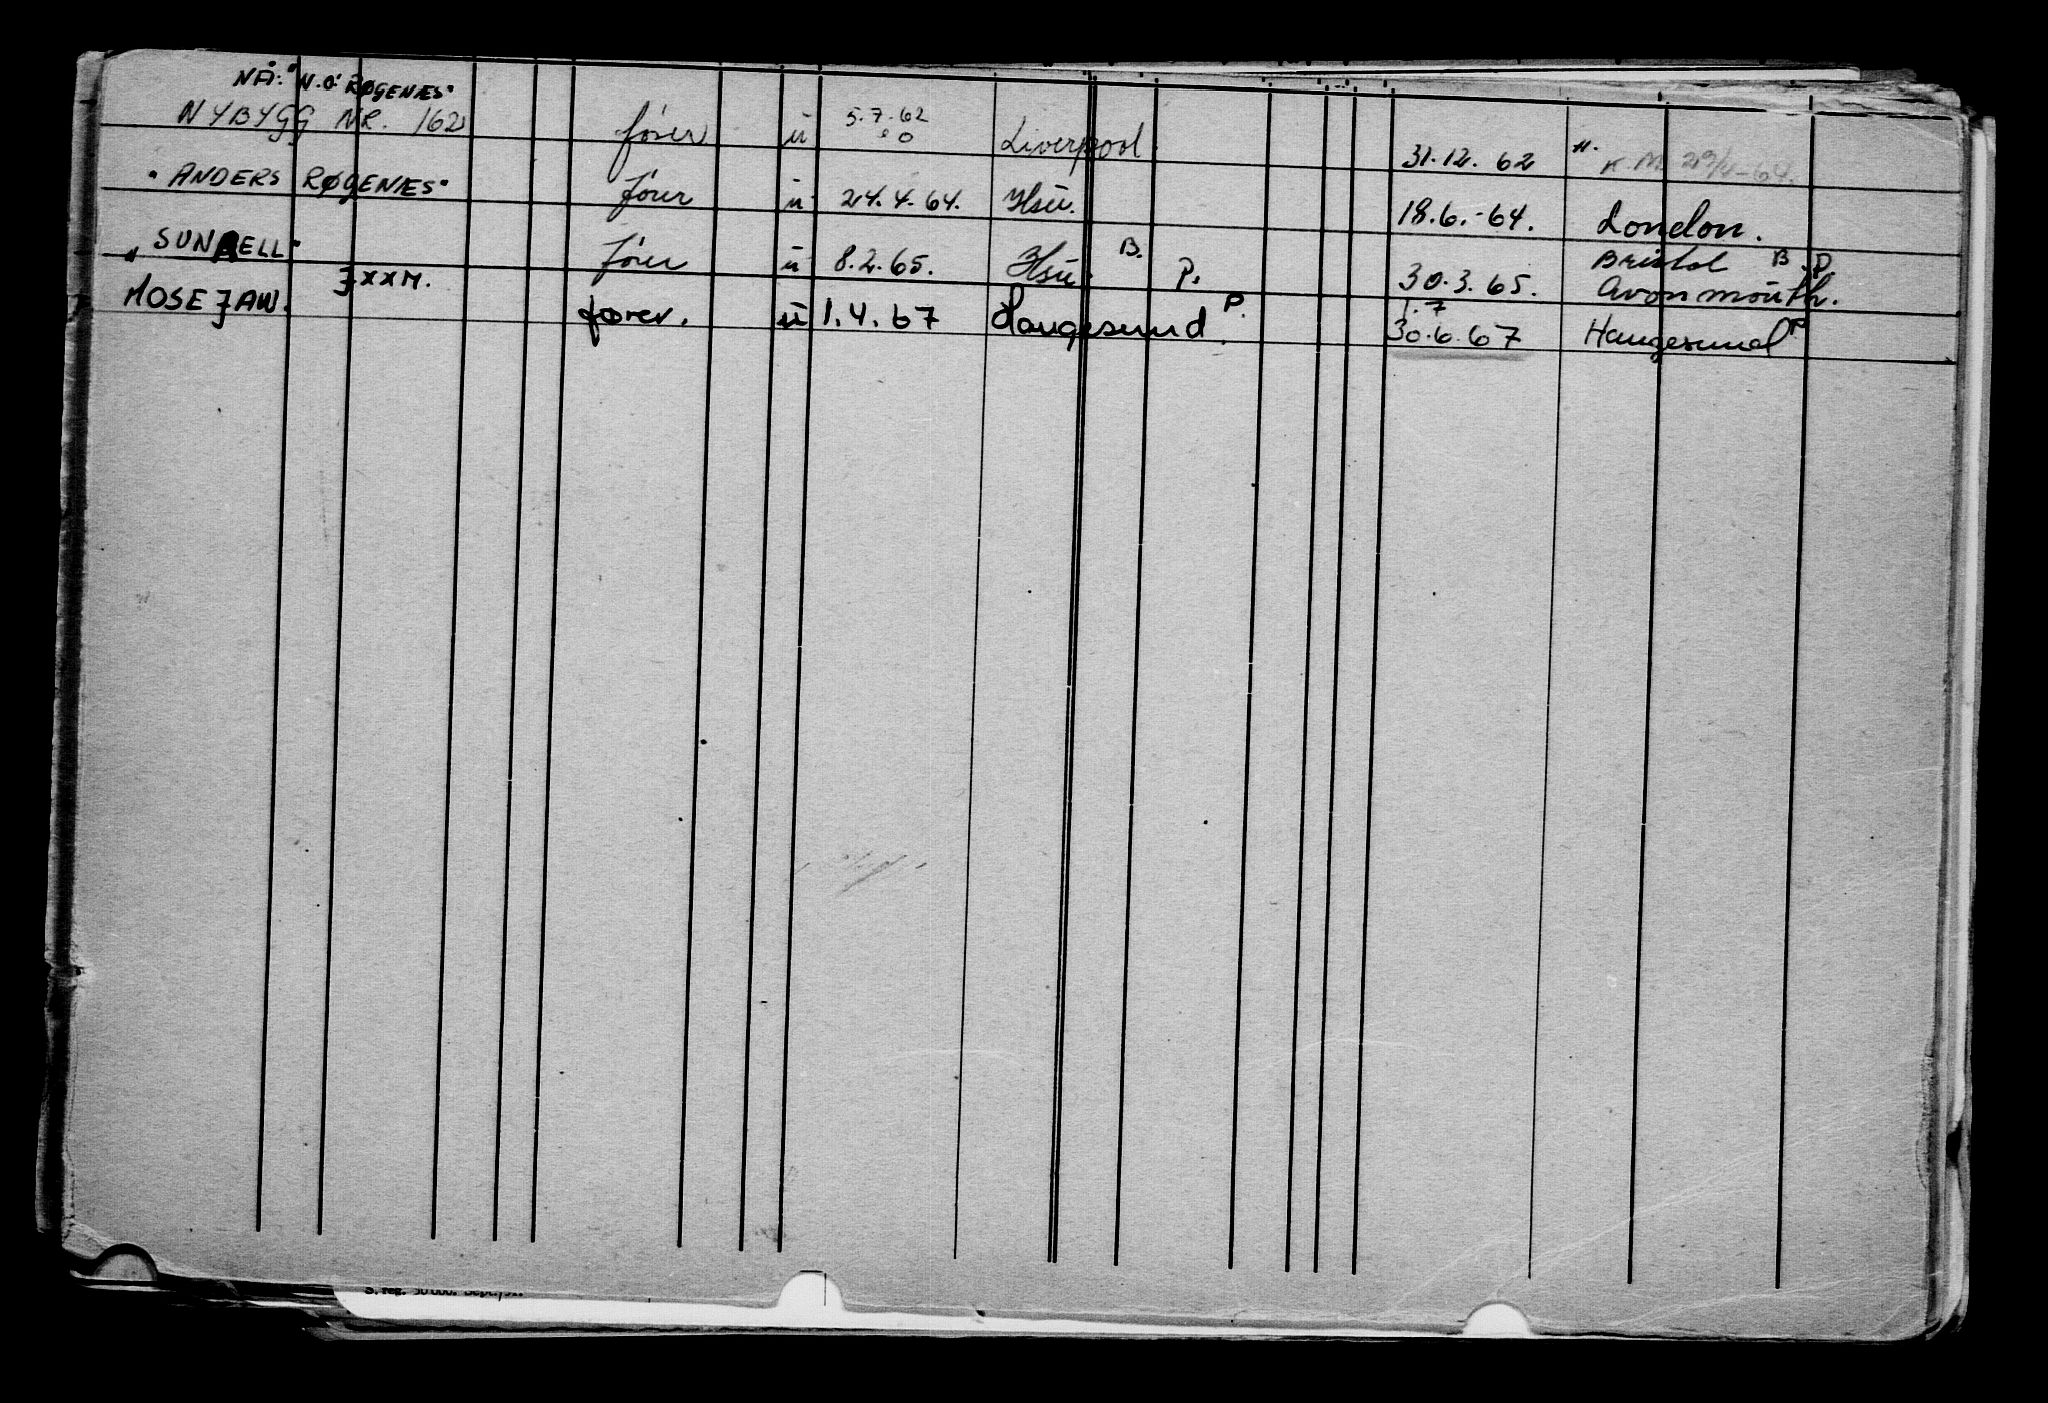 NÅ: "N.O. RØGENÆS"
NYBYGG NR. 162 fører u 5.7.62 Liverpool 31.12.62
"ANDERS RØGENÆS" fører u 24.4.64. Hsu. 18.6.-64. London.
"SUNELL" fører u 8.2.65. Hsu. B. P. 30.3.65. Bristol B. P. Avonmouth.
MOSE JAW. JXXM. fører. u 1.4.67 Haugesund P. 1.7 30.6.67 Haugesund P
S. reg. 50 000.